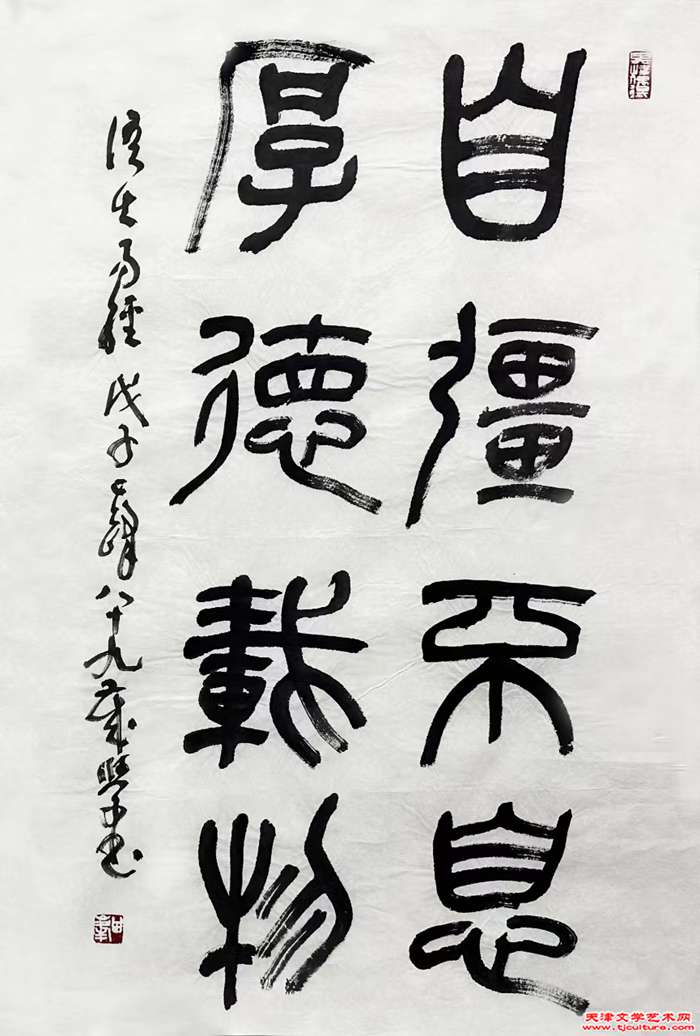 自彊不息
厚德載物
語出易經戊子八十九歲書
天津文学艺术网
www.tjculture.com